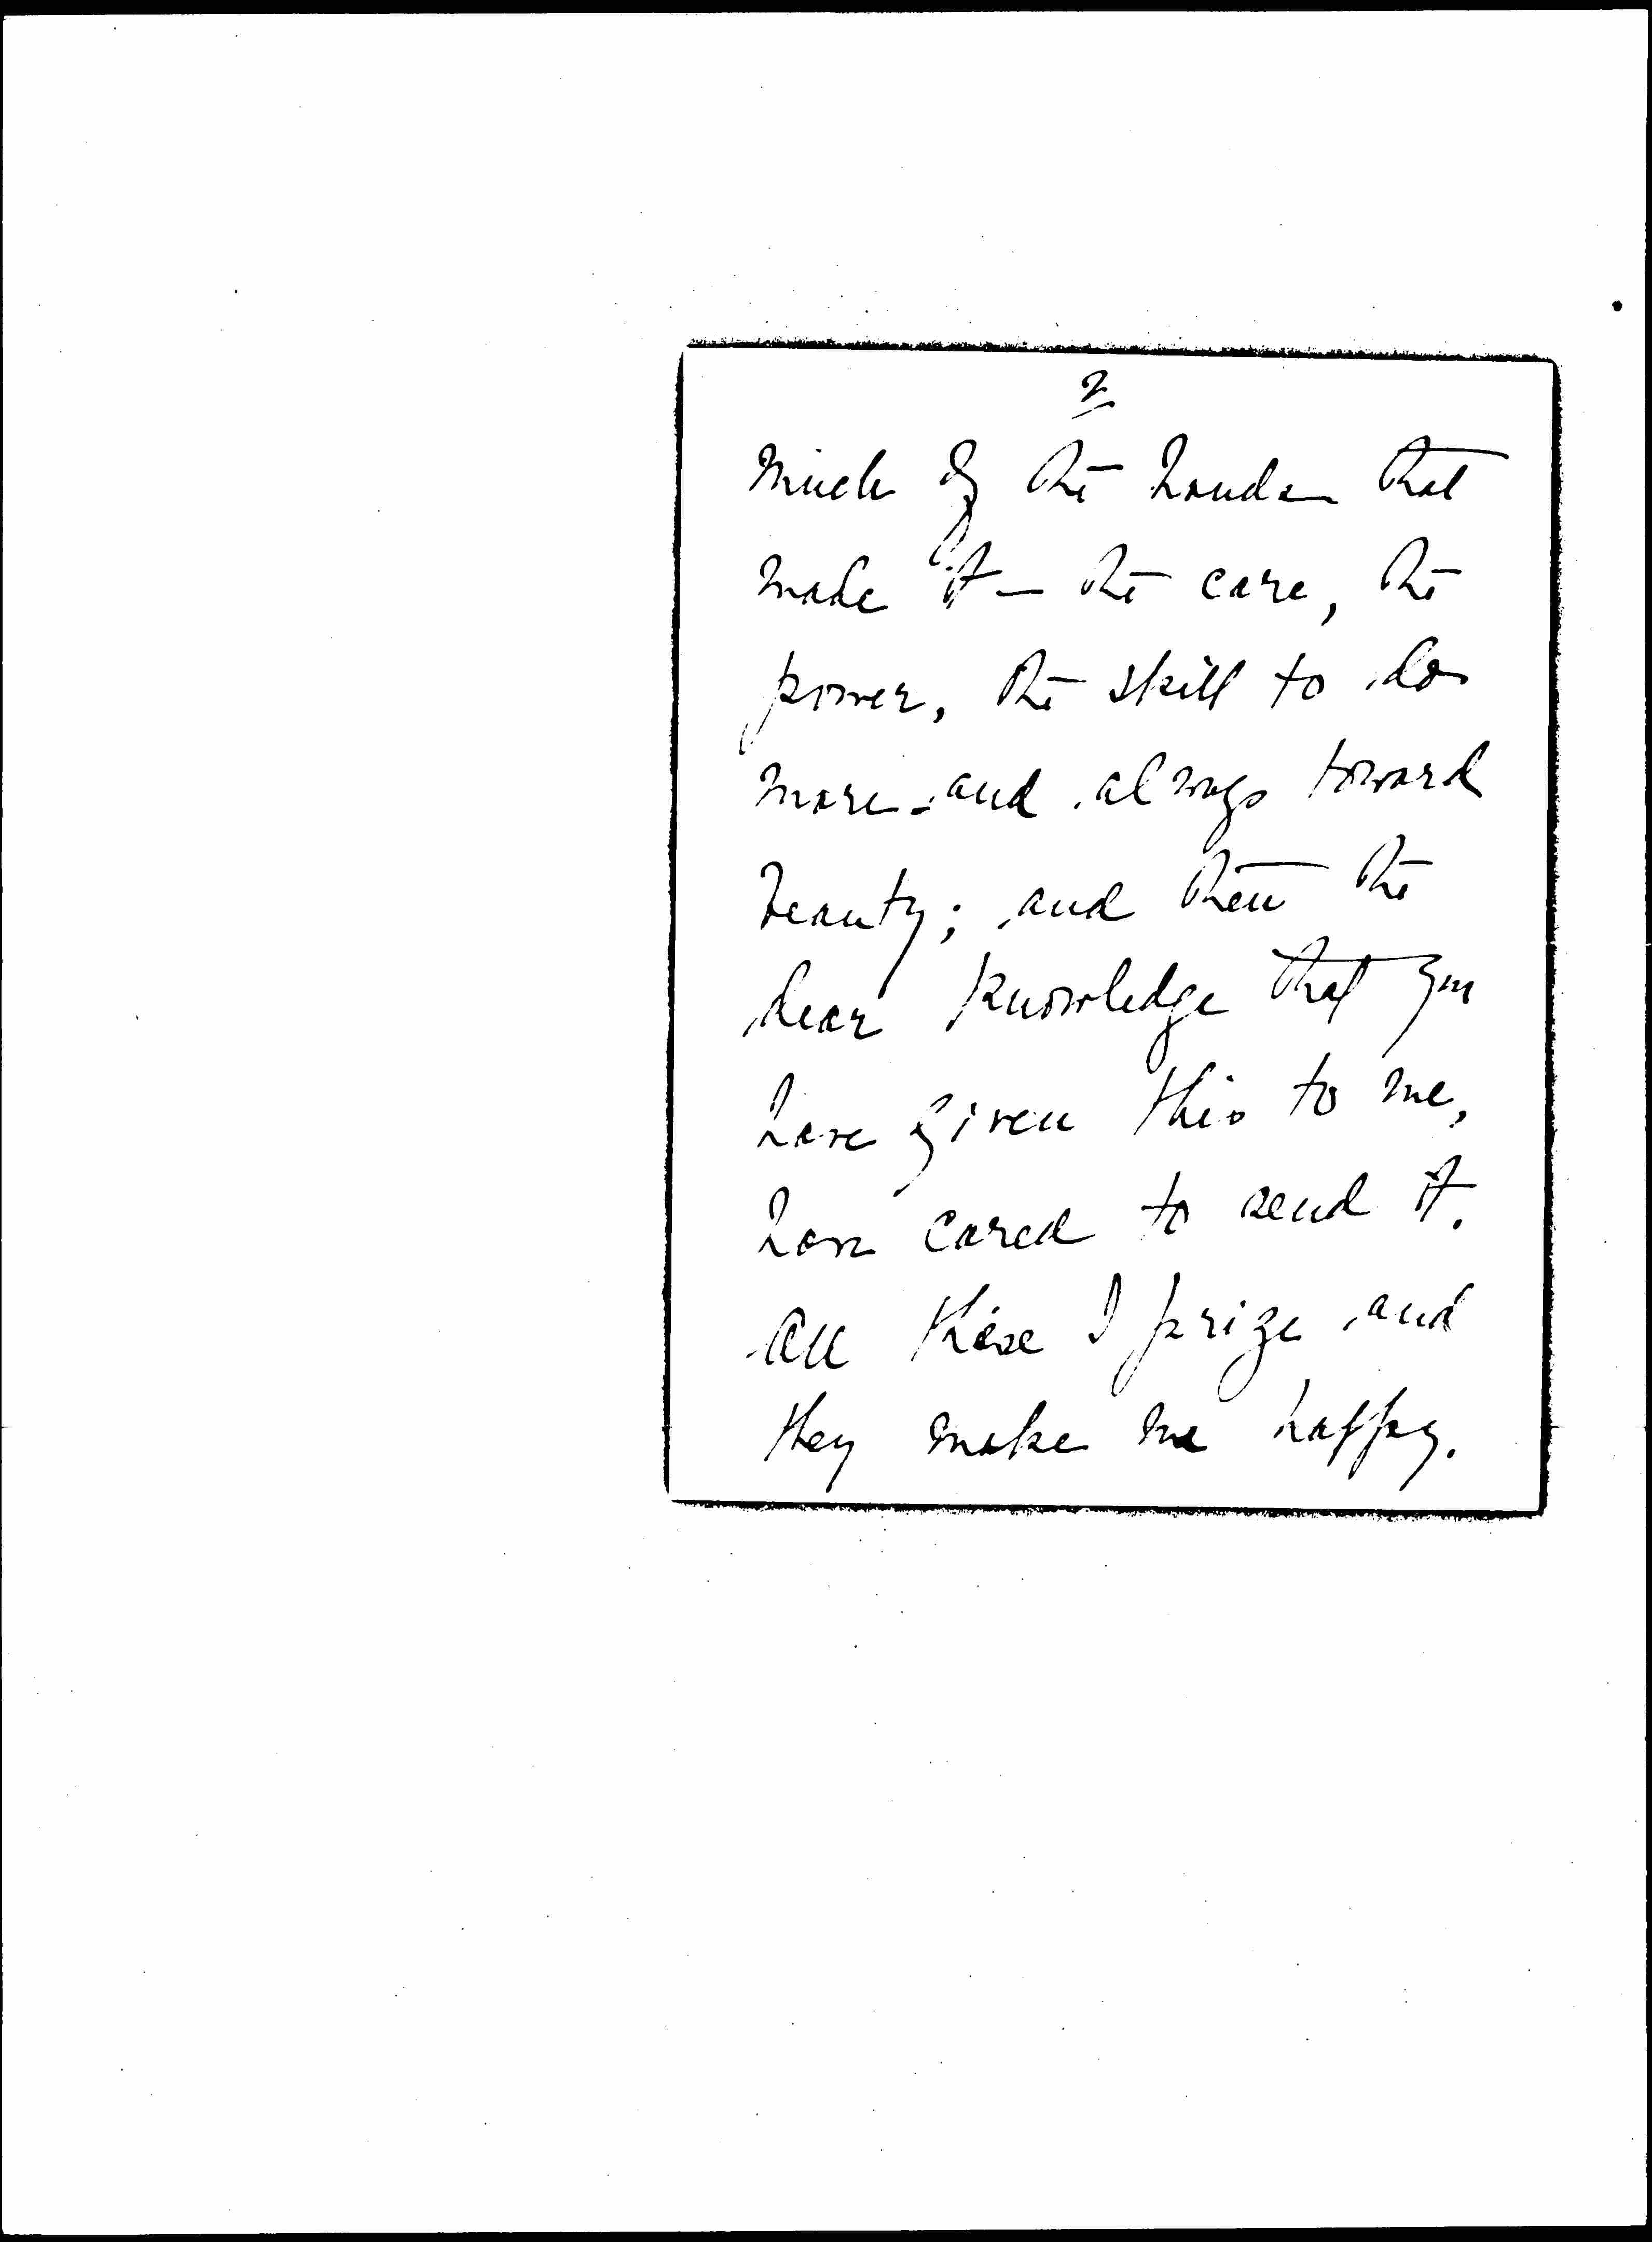 2
much of the hands that
made it — the care, the
power, the skill to do
more - and always toward
beauty; and then the
dear knowledge that you
have given this to me,
have cared to send it.
All these I prize and
they make me happy.